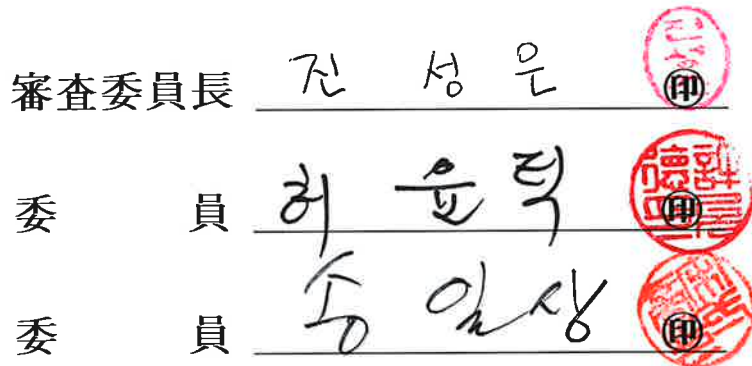 審査委員長 진 성 은 ㊞
委 員 허 윤 덕 ㊞
委 員 송 일 상 ㊞